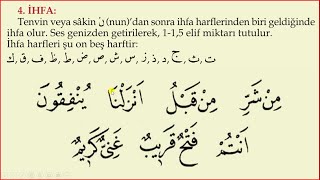 4. İHFA:
Tenvin veya sâkin نْ (nun)'dan sonra ihfa harflerinden biri geldiğinde
ihfa olur. Ses genizden getirilerek, 1-1,5 elif miktarı tutulur.
İhfa harfleri şu on beş harftir:
ت, ث, ج, د, ذ, ز, س, ش, ص, ض, ط, ظ, ف, ق, ك
مِنْ شَرِّ مِنْ قَبْلُ اَنْزَلْنَا يُنْفِقُونَ
اَنْتُمْ فَتْحٌ قَرِيبٌ غَنِىٌّ كَرِيمٌ